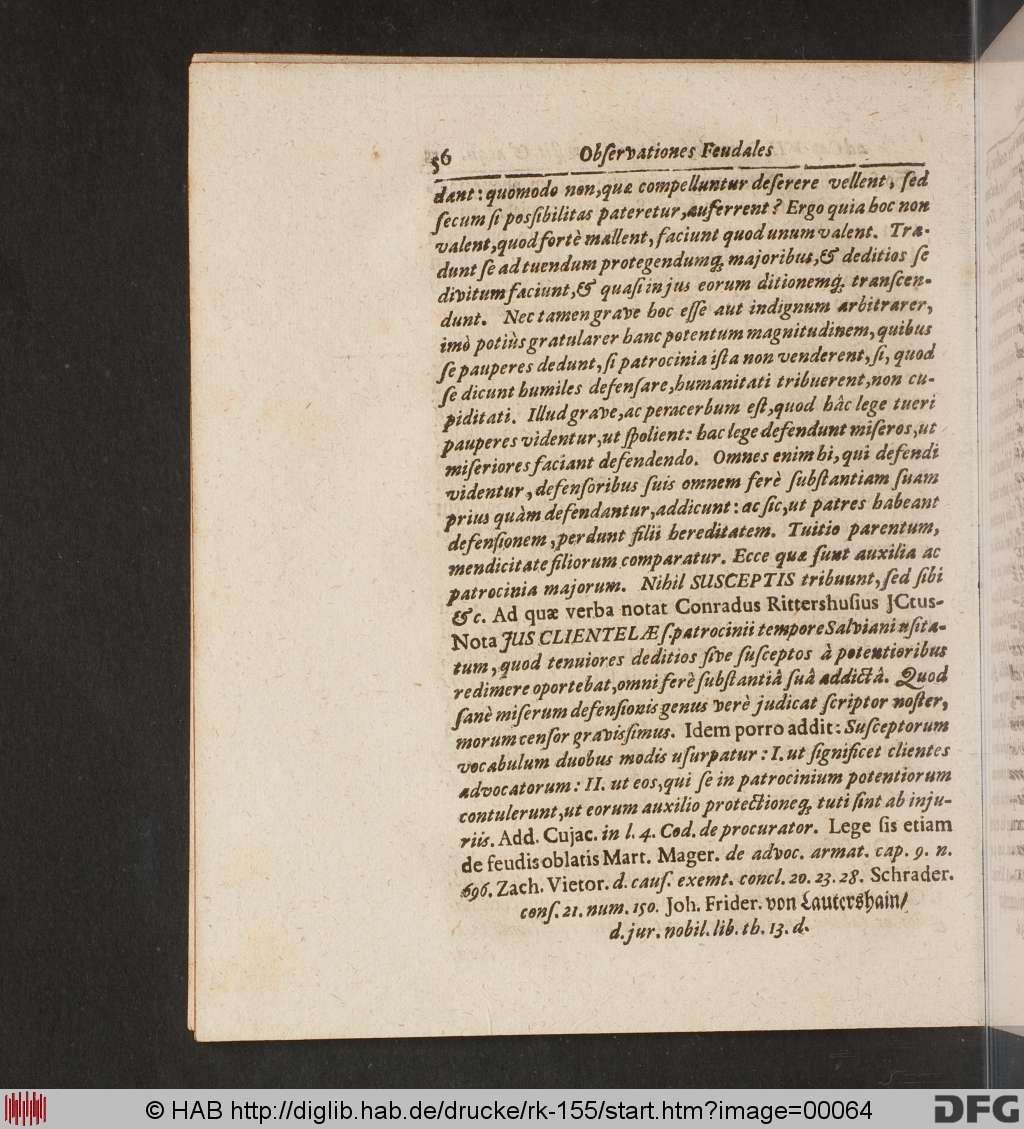 56 Obſervationes Feudales
dant: quomodo non, quæ compelluntur deſerere vellent, ſed
ſecum ſi poſſibilitas pateretur, auferrent? Ergo quia hoc non
valent, quod fortè mallent, faciunt quod unum valent. Tra-
dunt ſe ad tuendum protegendumq; majoribus, & deditios ſe
divitum faciunt, & quaſi in jus eorum ditionemq; tranſcen-
dunt. Nec tamen grave hoc eſſe aut indignum arbitrarer,
imò potiùs gratularer hanc potentum magnitudinem, quibus
ſe pauperes dedunt, ſi patrocinia iſta non venderent, ſi, quod
ſe dicunt humiles defenſare, humanitati tribuerent, non cu-
piditati. Illud grave, ac peracerbum eſt, quod hâc lege tueri
pauperes videntur, ut ſpolient: hac lege defendunt miſeros, ut
miſeriores faciant defendendo. Omnes enim hi, qui defendi
videntur, defenſoribus ſuis omnem ferè ſubſtantiam ſuam
prius quàm defendantur, addicunt: ac ſic, ut patres habeant
defenſionem, perdunt filii hereditatem. Tuitio parentum,
mendicitate filiorum comparatur. Ecce quæ ſunt auxilia ac
patrocinia majorum. Nihil SUSCEPTIS tribuunt, ſed ſibi
&c. Ad quæ verba notat Conradus Rittershuſius JCtus-
Nota JUS CLIENTELÆ ſ. patrocinii tempore Salviani uſita-
tum, quod tenuiores deditios ſive ſuſceptos à potentioribus
redimere oportebat, omni ferè ſubſtantiâ ſuâ addictâ. Quod
ſanè miſerum defenſionis genus verè judicat ſcriptor noſter,
morum cenſor graviſſimus. Idem porro addit: Suſceptorum
vocabulum duobus modis uſurpatur: I. ut ſignificet clientes
advocatorum: II. ut eos, qui ſe in patrocinium potentiorum
contulerunt, ut eorum auxilio protectioneq; tuti ſint ab inju-
riis. Add. Cujac. in l. 4. Cod. de procurator. Lege ſis etiam
de feudis oblatis Mart. Mager. de advoc. armat. cap. 9. n.
696. Zach. Vietor. d. cauſ. exemt. concl. 20. 23. 28. Schrader.
conſ. 21. num. 150. Joh. Frider. von Lautershain/
d. jur. nobil. lib. th. 13. d.
© HAB http://diglib.hab.de/drucke/rk-155/start.htm?image=00064
DFG